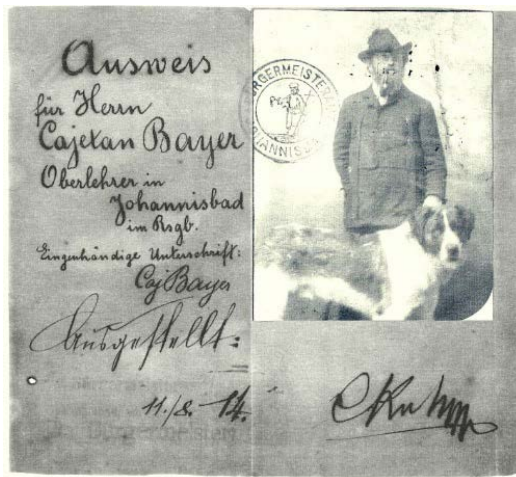 Ausweis
für Herrn
Cajetan Bayer
Oberlehrer in
Johannisbad
im Rsgb.
Eingenhändige Unterschrift:
Caj Bayer
Ausgestellt:
11./8. 14.
Bürgermeister
BÜRGERMEISTERAMT
JOHANNISBAD